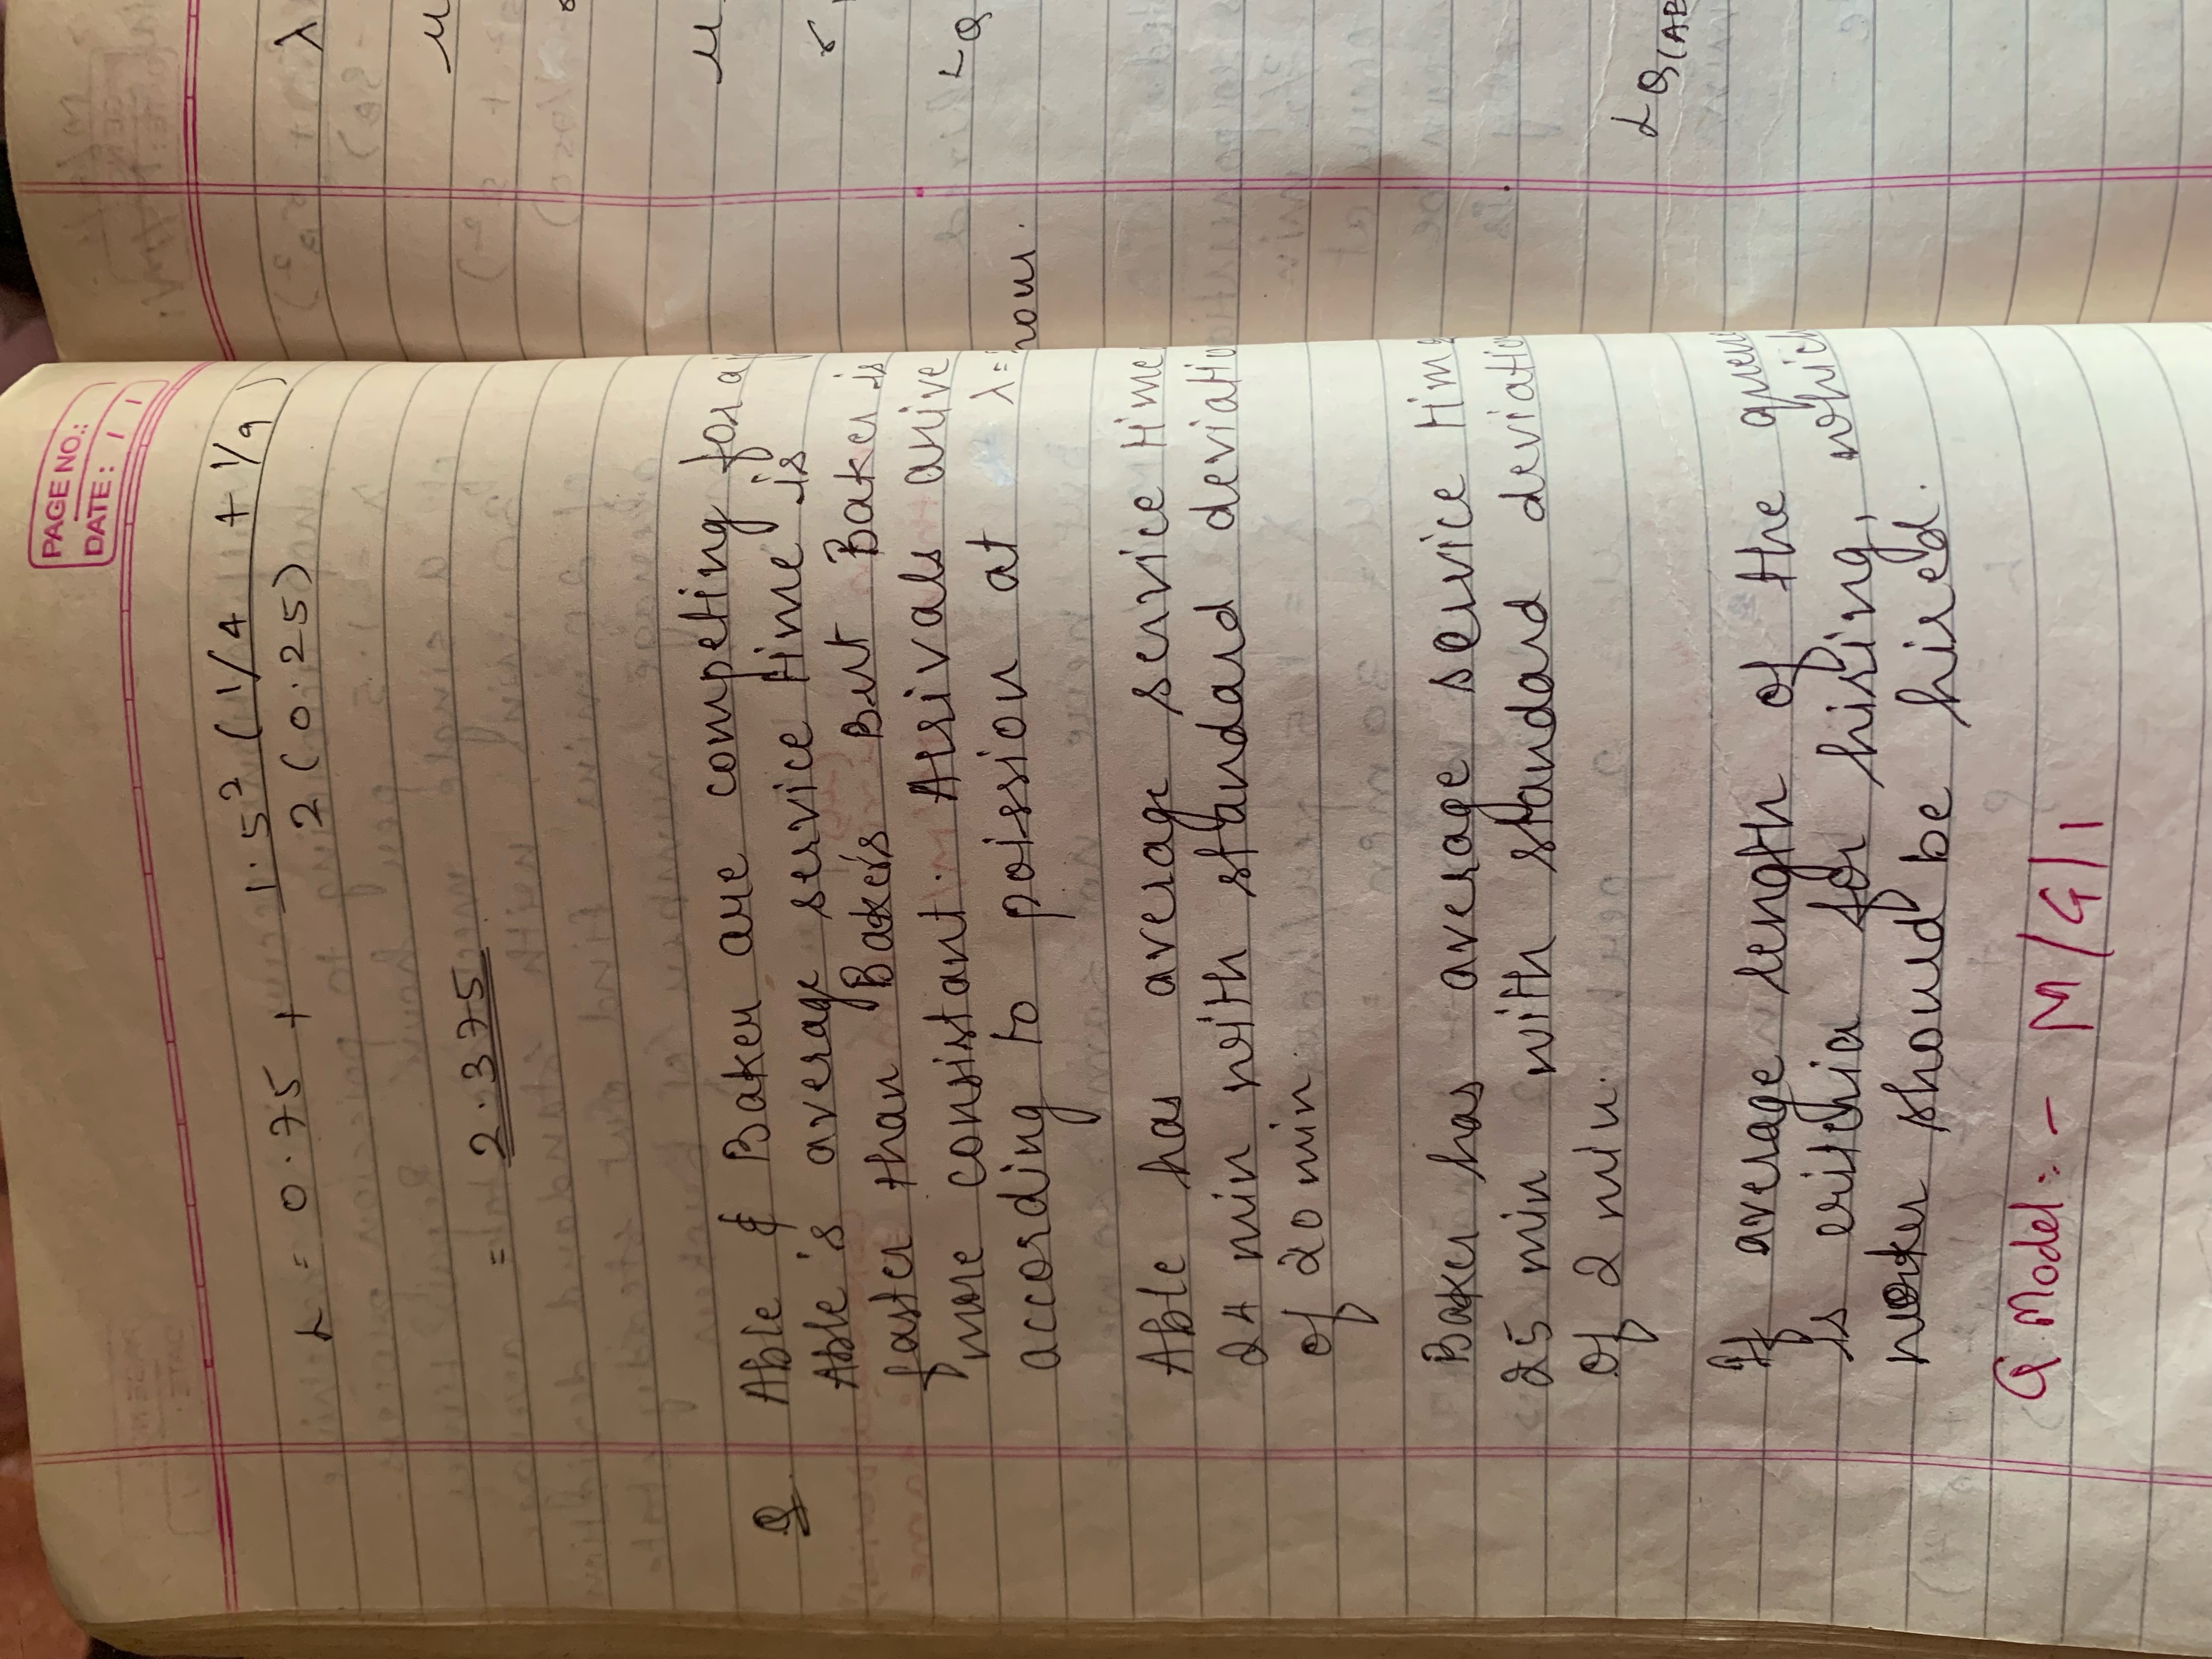 PAGE NO.:
DATE: / /
L = 0.75 + 1.5² (1/4 + 1/9)
2(0.25)
= 2.375
Q Able & Baker are competing for a
Able's average service time is
faster than Baker's But Baker is
more consistant. Arrivals arive
according to poission at λ= hour.
Able has average service time
24 min with standard deviatio
of 20 min.
Baker has average service time
25 min with standard deviatio
of 2 min.
If average length of the queue
is criteria for hiring, which
worker should be hired.
Q Model:- M/G/1
λ
μ
μ
LQ
LQ(AB